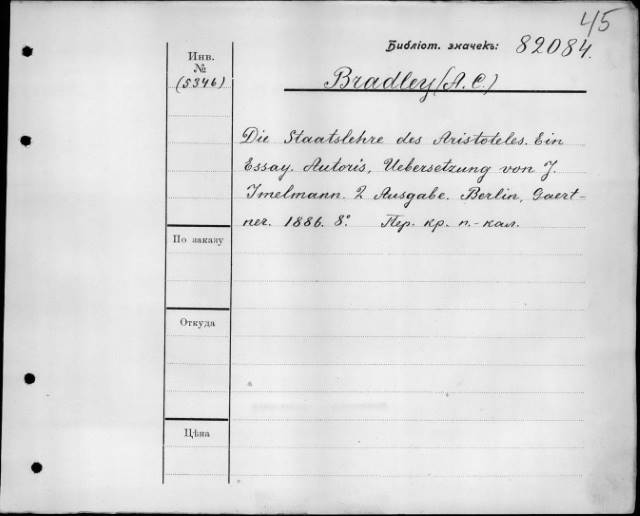 45
Библіот. значекъ: 82084.
Инв.
№
(5346)
Bradley (A. C.)
Die Staatslehre des Aristoteles. Ein
Essay. Autoris, Uebersetzung von J.
Imelmann. 2 Ausgabe. Berlin, Gaert-
ner. 1886. 8º. Пер. кр. п.-кал.
По заказу
Откуда
Цѣна